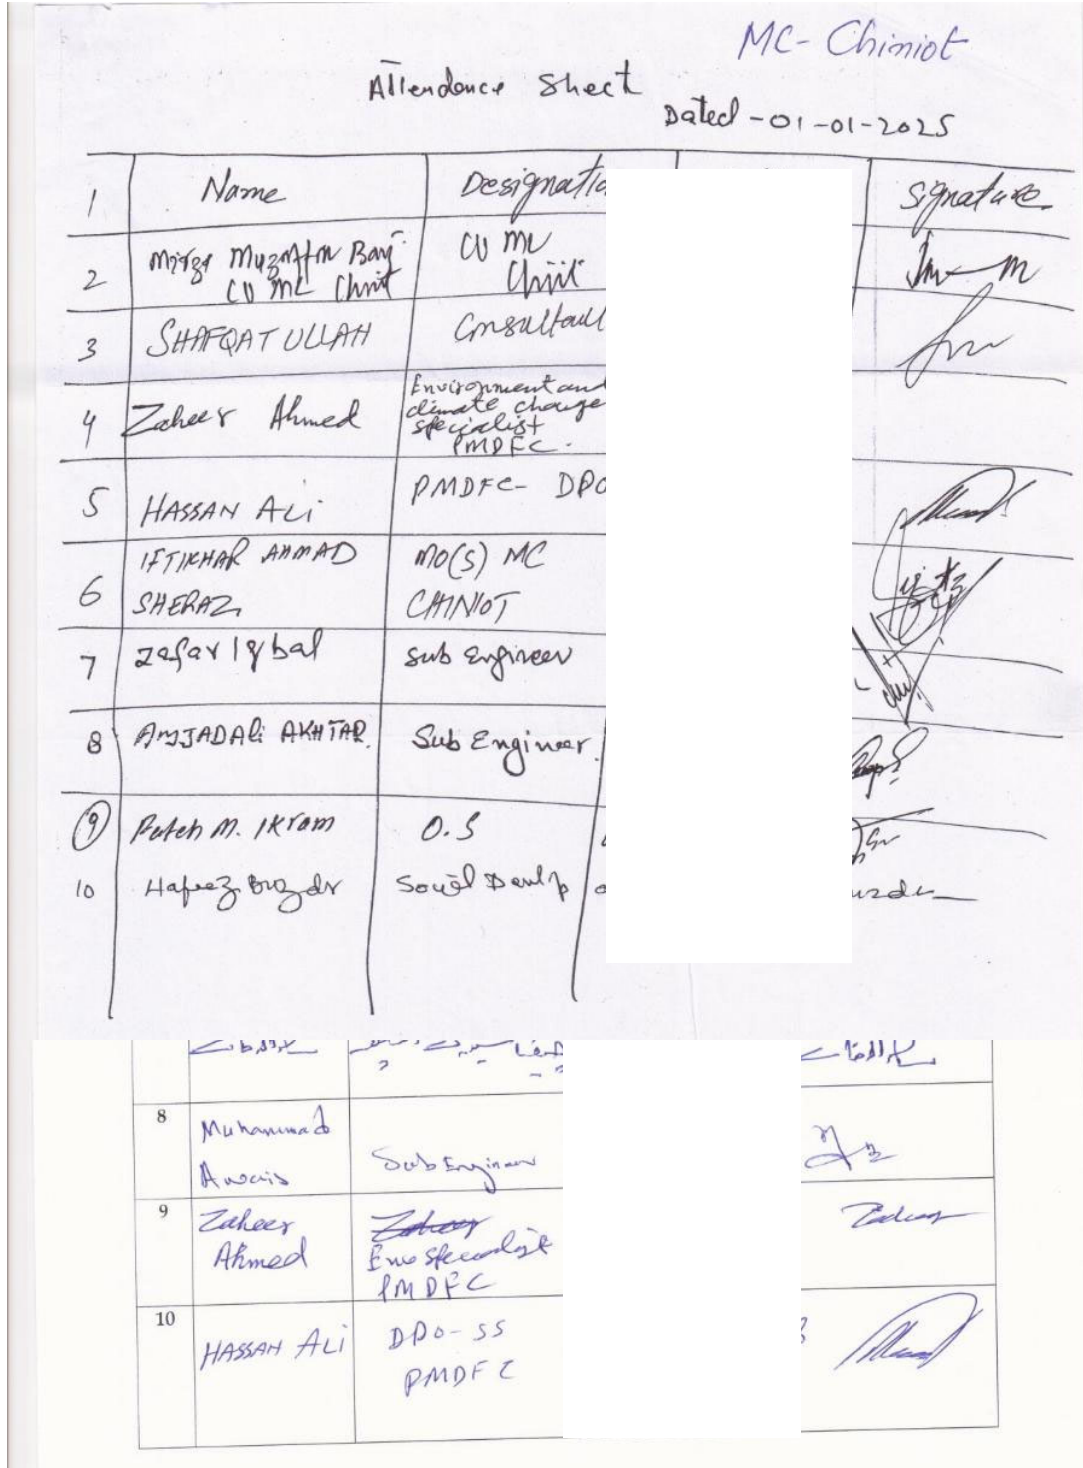 MC- Chiniot
Attendence Sheet
Dated -01-01-2025
1 Name Designatio Signature
2 Mirza Muzaffar Baig CO MC
CO MC Chniot Chniot
3 SHAFQAT ULLAH Consultant
4 Zaheer Ahmed Environment and
climate change
specialist
PMDFC.
5 HASSAN ALi PMDFC- DPO
6 IFTIKHAR AHMAD MO(S) MC
SHERAZ CHINIOT
7 zafar Iqbal Sub Engineer
8 AMJADALi AKHTAR. Sub Engineer.
9 M. Ikram O.S
10 Hafeez Buzdr Social Devlp
8 Muhammad
Awais Sub Engineer
9 Zaheer Zaheer Zaheer
Ahmed Env Specialist
PMDFC
10 HASSAN ALi DDO-SS
PMDFC